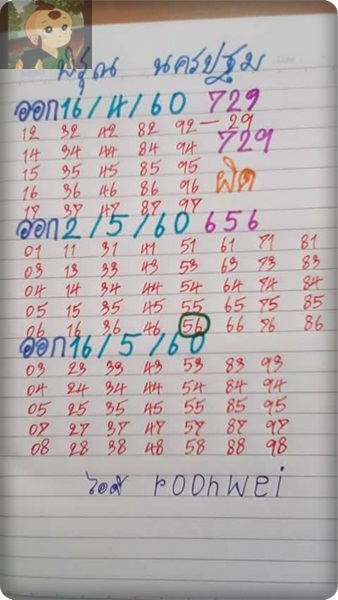 พรุณ นครปฐม
ออก 16/4/60 729
12 32 42 82 92 — 29
14 34 44 84 94 729
15 35 45 85 95 ผิด
16 36 46 86 96
17 37 47 87 97
ออก 2/5/60 656
01 11 31 41 51 61 71 81
03 13 33 43 53 63 73 83
04 14 34 44 54 64 74 84
05 15 35 45 55 65 75 85
06 16 36 46 56 66 76 86
ออก 16/5/60
03 23 33 43 53 83 93
04 24 34 44 54 84 94
05 25 35 45 55 85 95
07 27 37 47 57 87 97
08 28 38 48 58 88 98
ไอดี roonwei